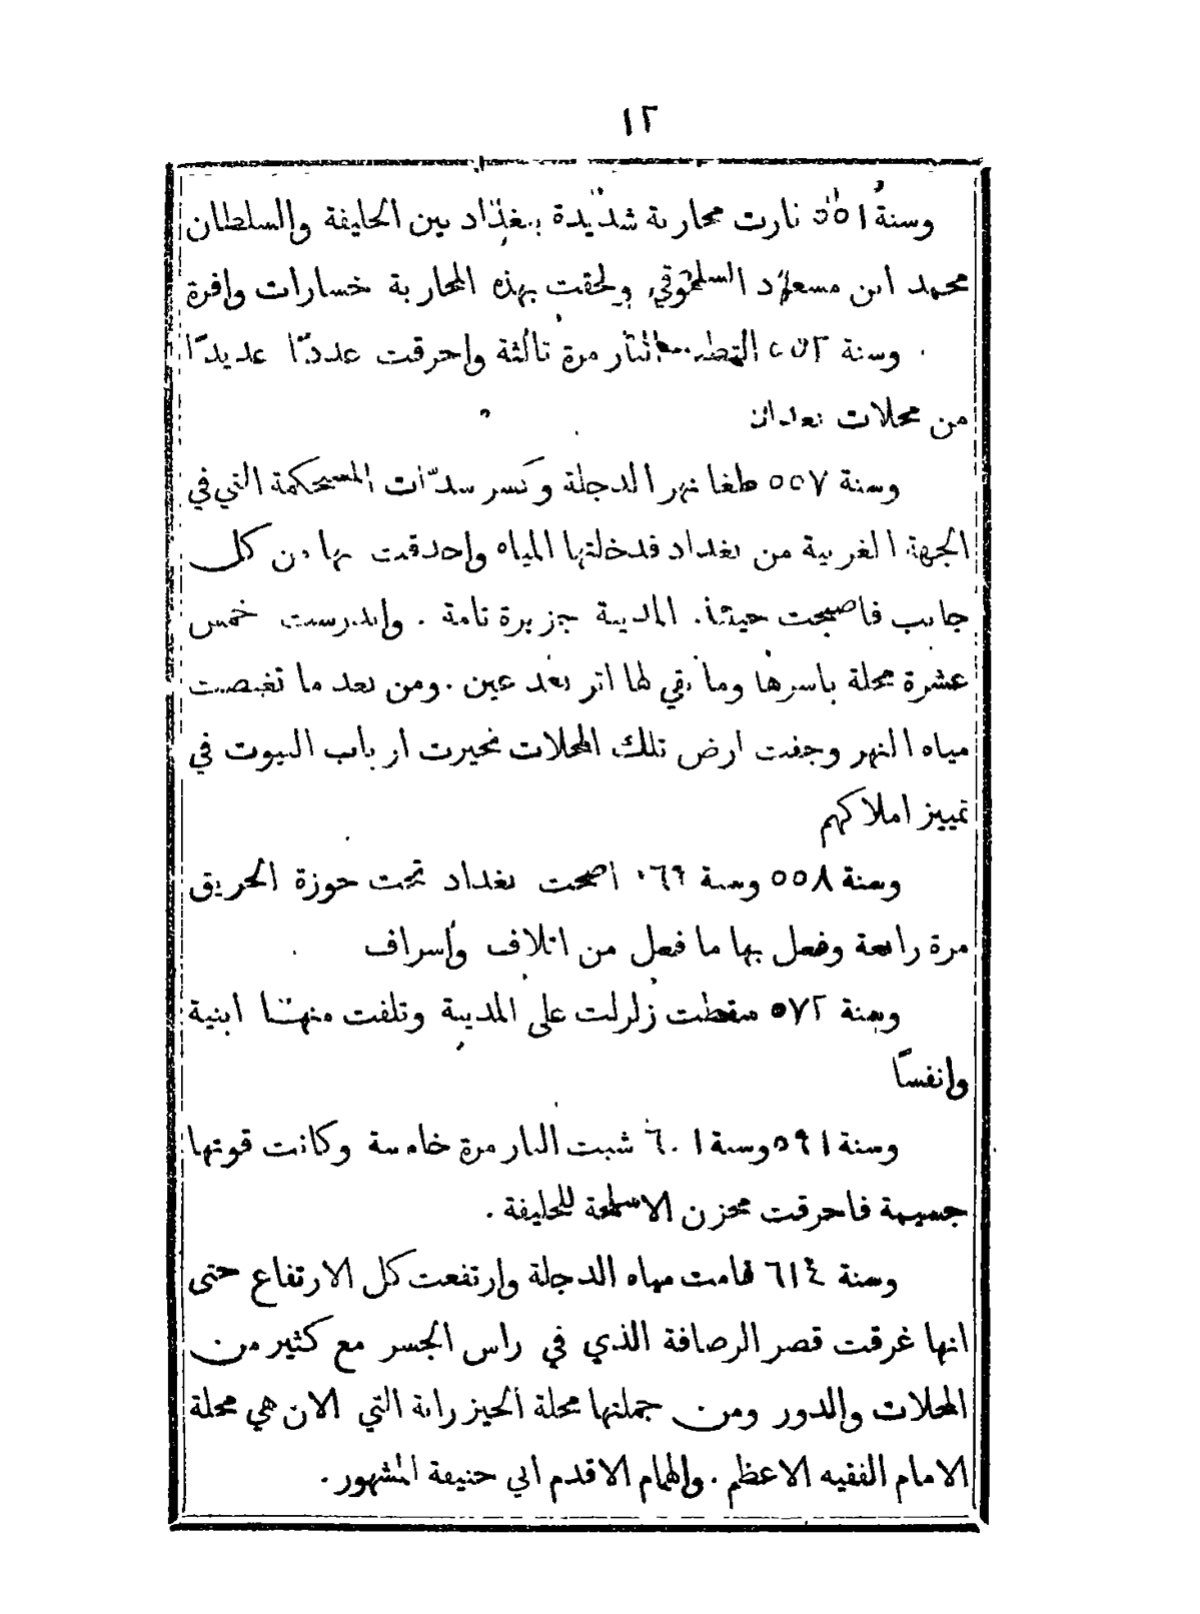 ١٢
وسنة ٥٥١ ثارت محاربة شديدة ببغداد بين الخليفة والسلطان
محمد ابن مسعود السلجوقي ولحقت بهذه المحاربة خسارات وافرة
وسنة ٥٥٢ النار مرة ثالثة واحرقت عددًا عديدًا
من محلات بغداد
وسنة ٥٥٧ طغا نهر الدجلة وكسر سدّات المستحكمة التي في
الجهة الغربية من بغداد فدخلتها المياه واحدقت بها من كل
جانب فاصبحت حينئذ المدينة جزيرة تامة . واندرست خمس
عشرة محلة باسرها وما بقي لها اثر بعد عين . ومن بعد ما نغيصت
مياه النهر وجفت ارض تلك المحلات تحيرت ارباب البيوت في
تمييز املاكهم
وسنة ٥٥٨ وسنة ٥٦٩ اصبحت بغداد تحت حوزة الحريق
مرة رابعة وفعل بها ما فعل من اتلاف واسراف
وسنة ٥٧٢ سقطت زلزلت على المدينة وتلفت منها ابنية
وانفسًا
وسنة ٥٩١ وسنة ٦٠١ شبت النار مرة خامسة وكانت قوتها
جسيمة فاحرقت مخزن الاسلحة للخليفة .
وسنة ٦١٤ قامت مياه الدجلة وارتفعت كل الارتفاع حتى
انها غرقت قصر الرصافة الذي في راس الجسر مع كثير من
المحلات والدور ومن جملتها محلة الخيزرانة التي الان هي محلة
الامام الفقيه الاعظم . والهمام الاقدم ابي حنيفة المشهور .